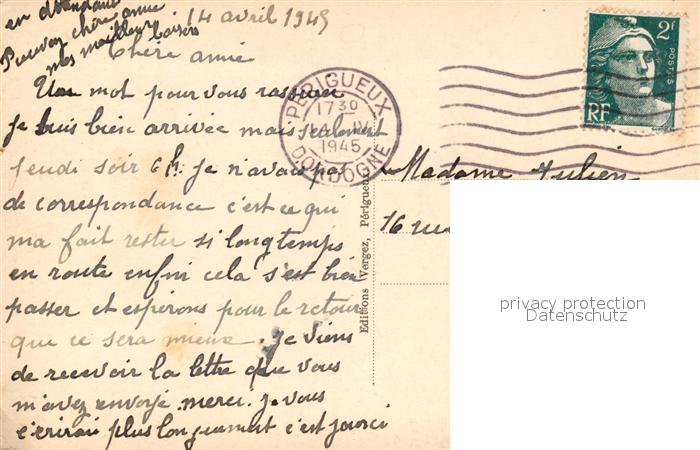 14 avril 1945
Chère amie
Un mot pour vous rassurer
Je suis bien arrivée mais seulement
jeudi soir 6h. Je n'avais pas
de correspondance c'est ce qui
ma fait rester si longtemps
en route enfin cela s'est bien
passer et espérons pour le retour
que ce sera mieux. Je viens
de recevoir la lettre que vous
m'avez envoyé merci. Je vous
écrirai plus longuement c'est promi
en attendant
Recevez chère amie
mes meilleurs baisers
PÉRIGUEUX
1730
1945
DORDOGNE
2F
POSTES
RF
Madame Julien
16 rue
Editions Vergez, Périgueux
privacy protection
Datenschutz